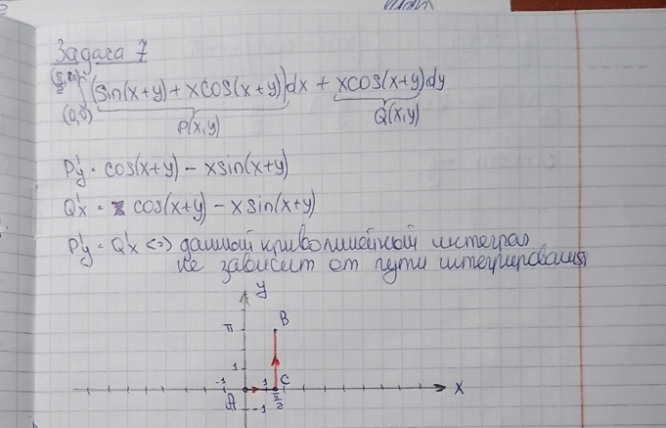 Задача 7
(π/2, π)
∫ (sin(x+y) + xcos(x+y))dx + xcos(x+y)dy
(0,0)
P(x,y) Q(x,y)
P'y = cos(x+y) - xsin(x+y)
Q'x = cos(x+y) - xsin(x+y)
P'y = Q'x <=> данный криволинейный интеграл
не зависит от пути интегрирования
y
π B
1
-1 1 C x
A π/2
-1